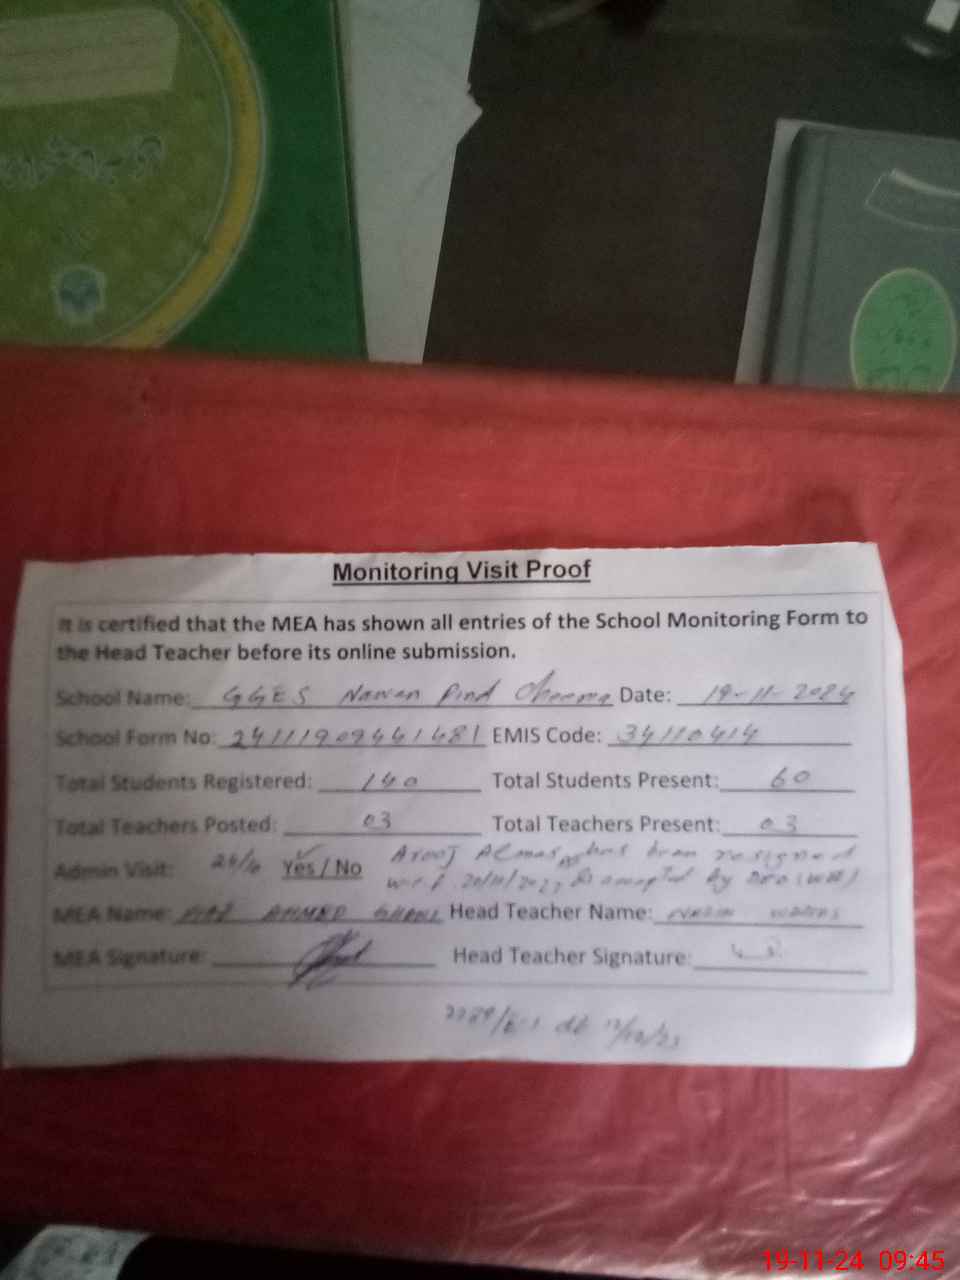 Monitoring Visit Proof
It is certified that the MEA has shown all entries of the School Monitoring Form to
the Head Teacher before its online submission.
School Name: GGES Nawan Pind Cheema Date: 19-11-2024
School Form No: 24111909441481 EMIS Code: 34110414
Total Students Registered: 140 Total Students Present: 60
Total Teachers Posted: 03 Total Teachers Present: 03
Admin Visit: Yes / No Arooj Almas has been resigned
w.e.f by
MEA Name: AHMED Head Teacher Name:
MEA Signature: Head Teacher Signature:
19-11-24 09:45